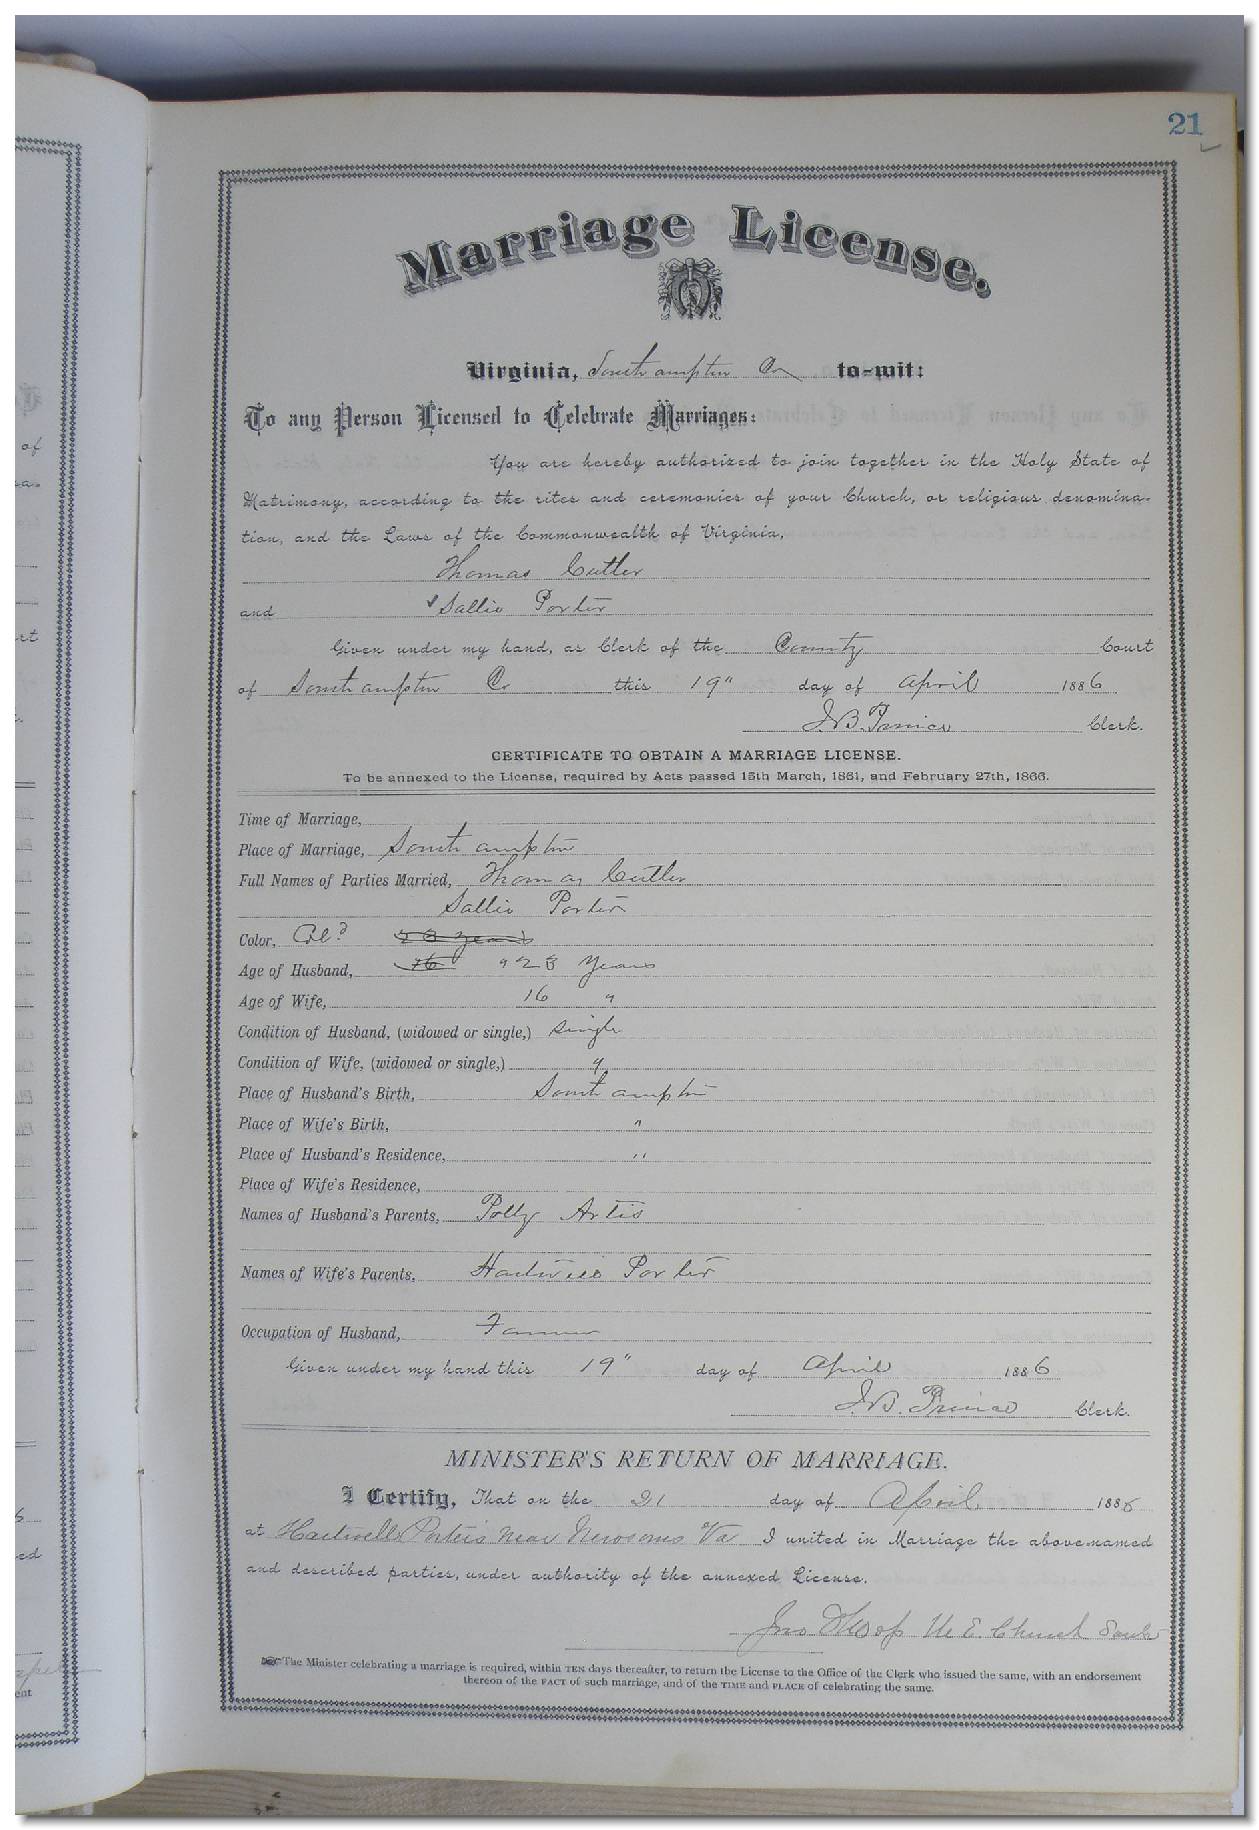 21
Marriage License.
Virginia, Southampton Co to-wit:
To any Person Licensed to Celebrate Marriages:
You are hereby authorized to join together in the Holy State of
Matrimony, according to the rites and ceremonies of your Church, or religious denomina-
tion, and the Laws of the Commonwealth of Virginia,
Thomas Cutler
and Sallie Porter
Given under my hand, as Clerk of the County Court
of Southampton Co this 19" day of April 1886
J.B. Prince Clerk.
CERTIFICATE TO OBTAIN A MARRIAGE LICENSE.
To be annexed to the License, required by Acts passed 15th March, 1861, and February 27th, 1866.
Time of Marriage,
Place of Marriage, Southampton
Full Names of Parties Married, Thomas Cutler
Sallie Porter
Color, Cold 23 years
Age of Husband, 16 "23 years
Age of Wife, 16 "
Condition of Husband, (widowed or single,) single
Condition of Wife, (widowed or single,) "
Place of Husband's Birth, Southampton
Place of Wife's Birth, "
Place of Husband's Residence, "
Place of Wife's Residence,
Names of Husband's Parents, Polly Artis
Names of Wife's Parents, Hartwell Porter
Occupation of Husband, Farmer
Given under my hand this 19" day of April 1886
J.B. Prince Clerk.
MINISTER'S RETURN OF MARRIAGE.
I Certify, That on the 21 day of April, 1886
at Hartwell Porter's near Newsoms Va I united in Marriage the above-named
and described parties, under authority of the annexed License.
Jno M. E. Church South
The Minister celebrating a marriage is required, within TEN days thereafter, to return the License to the Office of the Clerk who issued the same, with an endorsement
thereon of the FACT of such marriage, and of the TIME and PLACE of celebrating the same.